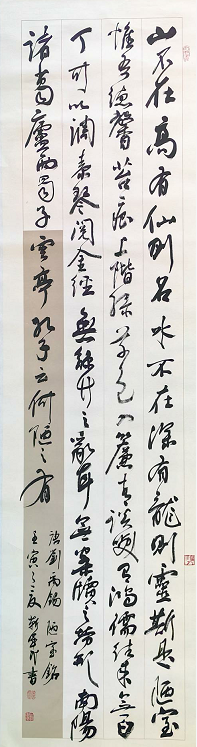 山不在高有仙則名水不在深有龍則靈斯是陋室
惟吾德馨苔痕上階綠草色入簾青談笑有鴻儒往來無白
丁可以調素琴閱金經無絲竹之亂耳無案牘之勞形南陽
諸葛廬西蜀子雲亭孔子云何陋之有
唐劉禹錫陋室銘
壬寅之夏書